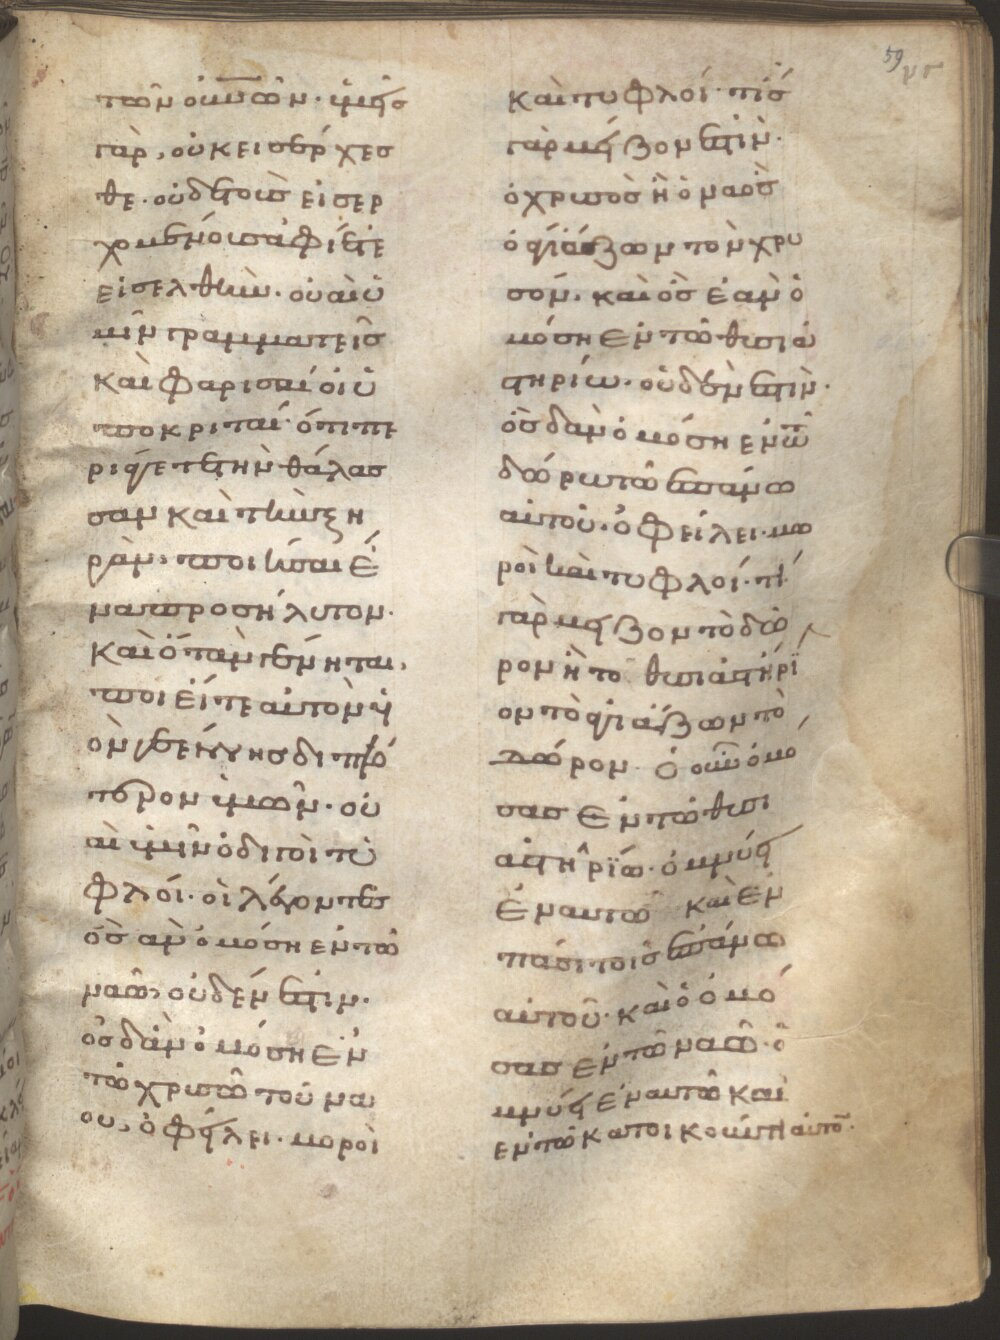 59
τῶν οὐν̅ῶν· ὑμεῖς
γὰρ, οὐκ εἰσέρχεσ
θε· οὐδὲ τοῖς εἰσερ
χομένοις ἀφίετε
εἰσελθεῖν· οὐαὶ ὑ
μῖν γραμματεῖς
καὶ φαρισαίοι ὑ
ποκριταί· ὅτι πε
ριάγετε τὴν θάλασ
σαν καὶ τὴν ξη
ρὰν· ποιῆσαι ἕ
να προσήλυτον·
καὶ ὅταν γένηται,
ποιεῖτε αὐτὸν υἱ
ὸν γεέννης διπλό
τερον ὑμῶν· οὐ
αὶ ὑμῖν ὁδηγοὶ τυ
φλοί· οἱ λέγοντες
ὃς ἂν ὀμόσῃ ἐν τῶ
ναῶ, οὐδέν ἐστιν·
ὃς δ᾽ ἂν ὀμόσῃ ἐν
τῶ χρυσῶ τοῦ να
οῦ, ὀφείλει· μοροὶ
καὶ τυφλοί· τίς
γὰρ μείζον ἐστὶν·
ὁ χρυσὸς ἢ ὁ ναὸς
ὁ ἁγιάζων τὸν χρυ
σόν· καὶ ὃς ἐὰν ὀ
μόσῃ ἐν τῶ θυσια
στηρίω· οὐδέν ἐστὶν·
ὃς δ᾽ ἂν ὀμόσῃ ἐν τῶ
δώρω τῶ ἐπάνω
αὐτοῦ· ὀφείλει· μω
ροὶ καὶ τυφλοί· τί
γὰρ μείζον τὸ δῶ
ρον ἢ τὸ θυσιαστήρϊ
ον τὸ ἁγιάζων τὸ
δῶρον· ὁ οὖν ὀμό
σας ἐν τῶ θυσι
αστηρϊω· ὀμνύει
ἐν αυτῶ καὶ ἐν
πάσι τοῖς ἐπάνω
αὐτοῦ· καὶ ὁ ὀμό
σας ἐν τῶ ναῶ· ὀ
μνύει ἐν αυτῶ καὶ
ἐν τῶ κατοικοῦντι αὐτο̅·